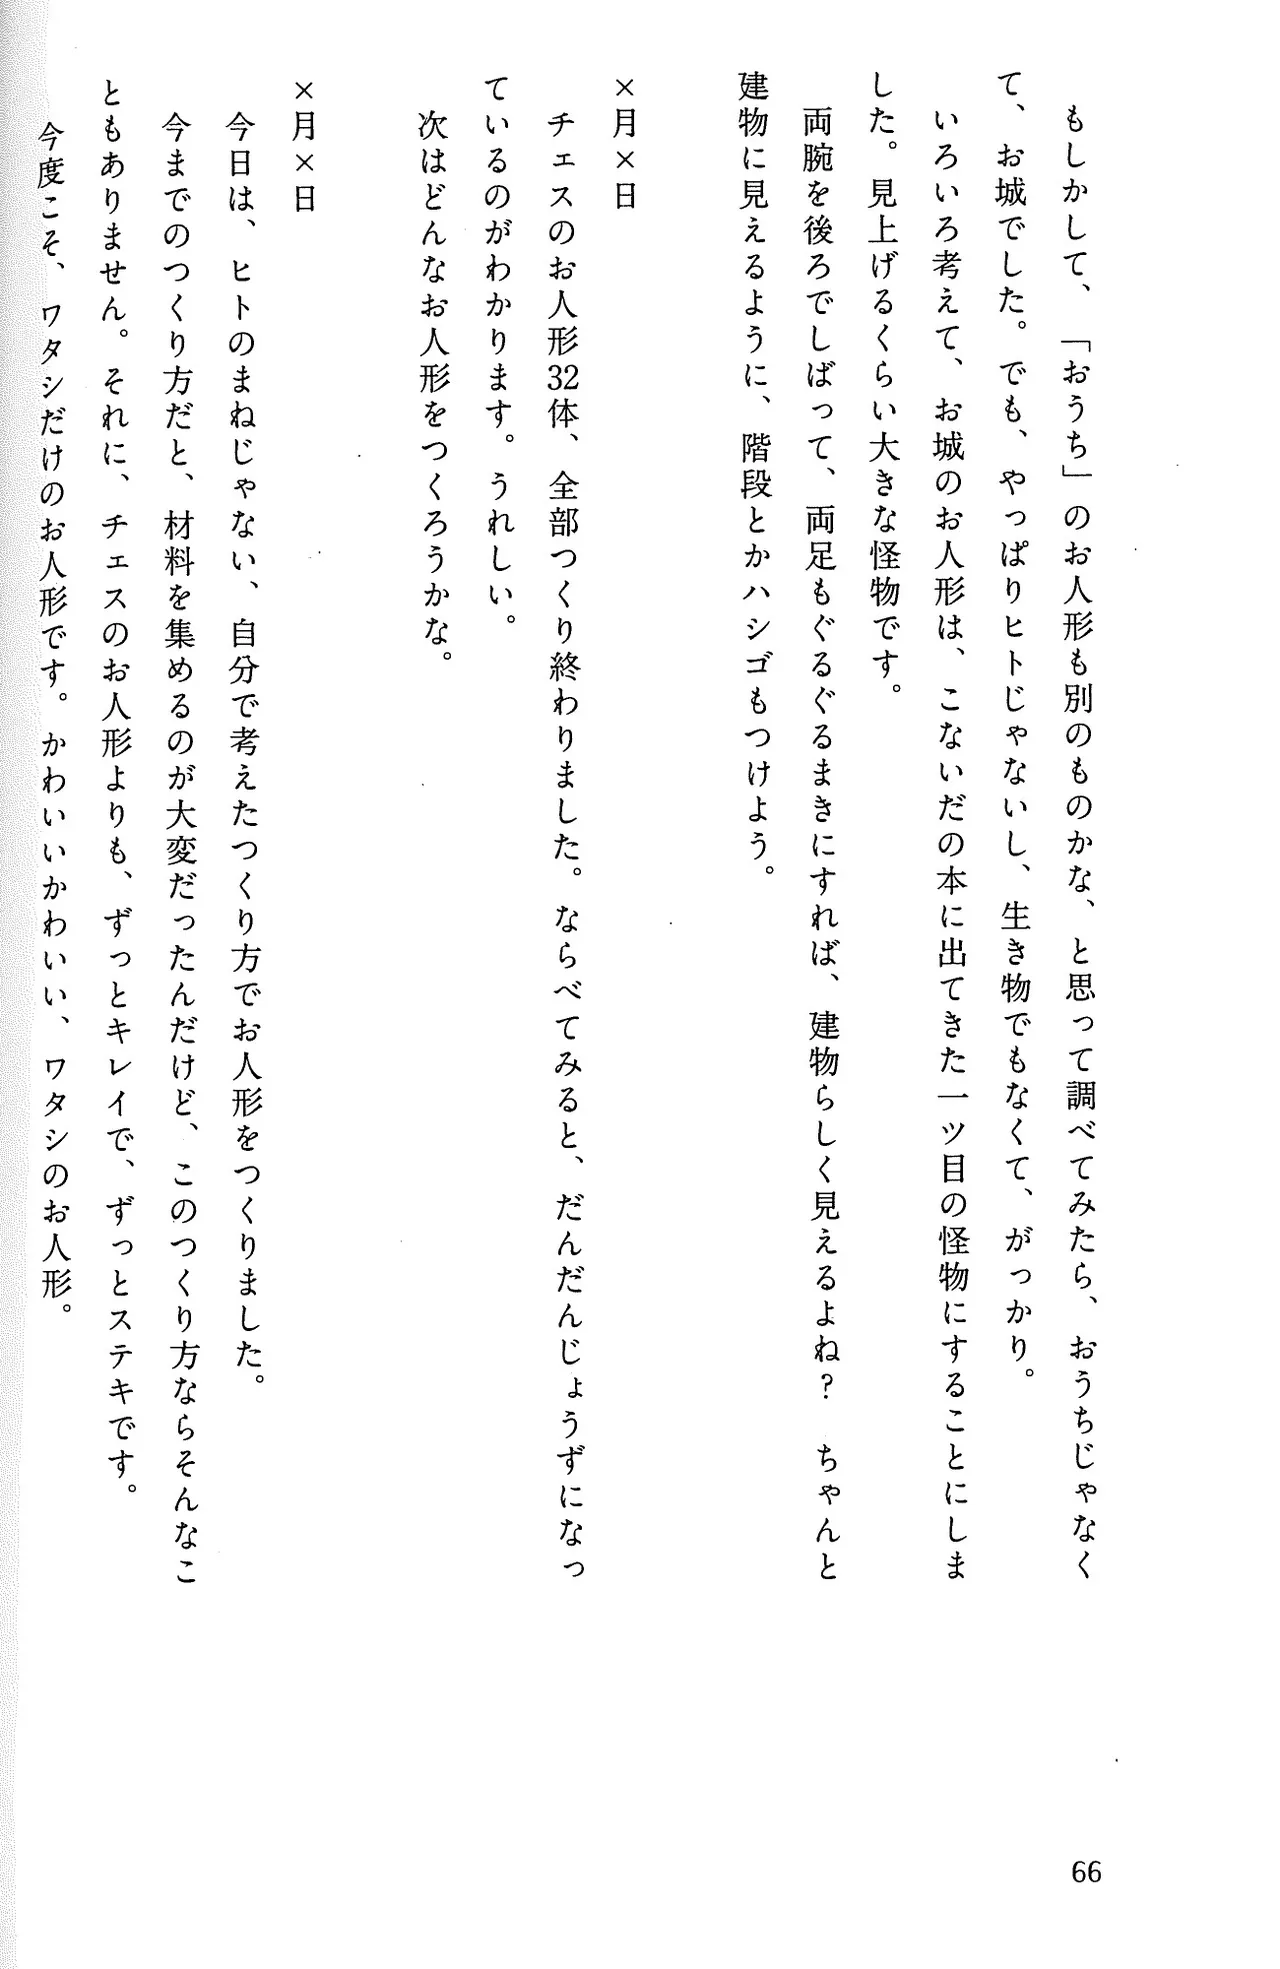 もしかして、「おうち」のお人形も別のものかな、と思って調べてみたら、おうちじゃなく
て、お城でした。でも、やっぱりヒトじゃないし、生き物でもなくて、がっかり。
いろいろ考えて、お城のお人形は、こないだの本に出てきた一ツ目の怪物にすることにしま
した。見上げるくらい大きな怪物です。
両腕を後ろでしばって、両足もぐるぐるまきにすれば、建物らしく見えるよね？　ちゃんと
建物に見えるように、階段とかハシゴもつけよう。
×月×日
チェスのお人形32体、全部つくり終わりました。ならべてみると、だんだんじょうずになっ
ているのがわかります。うれしい。
次はどんなお人形をつくろうかな。
×月×日
今日は、ヒトのまねじゃない、自分で考えたつくり方でお人形をつくりました。
今までのつくり方だと、材料を集めるのが大変だったんだけど、このつくり方ならそんなこ
ともありません。それに、チェスのお人形よりも、ずっとキレイで、ずっとステキです。
今度こそ、ワタシだけのお人形です。かわいいかわいい、ワタシのお人形。
66